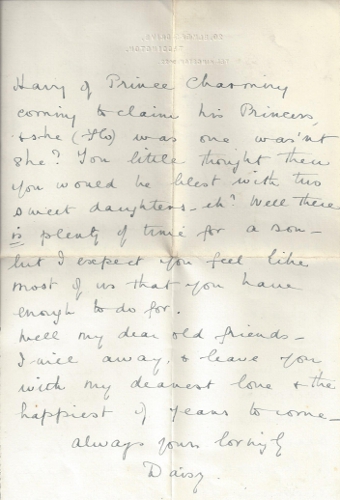 Harry of Prince Charming
coming to claim his Princess,
& she (Flo) was one was'nt
she? You little thought then
you would be blest with two
sweet daughters - eh? Well there
is plenty of time for a son -
but I expect you feel like
most of us that you have
enough to do for.
Well my dear old friends -
I will away, & leave you
with my dearest love & the
happiest of years to come -
always yours lovingly
Daisy.